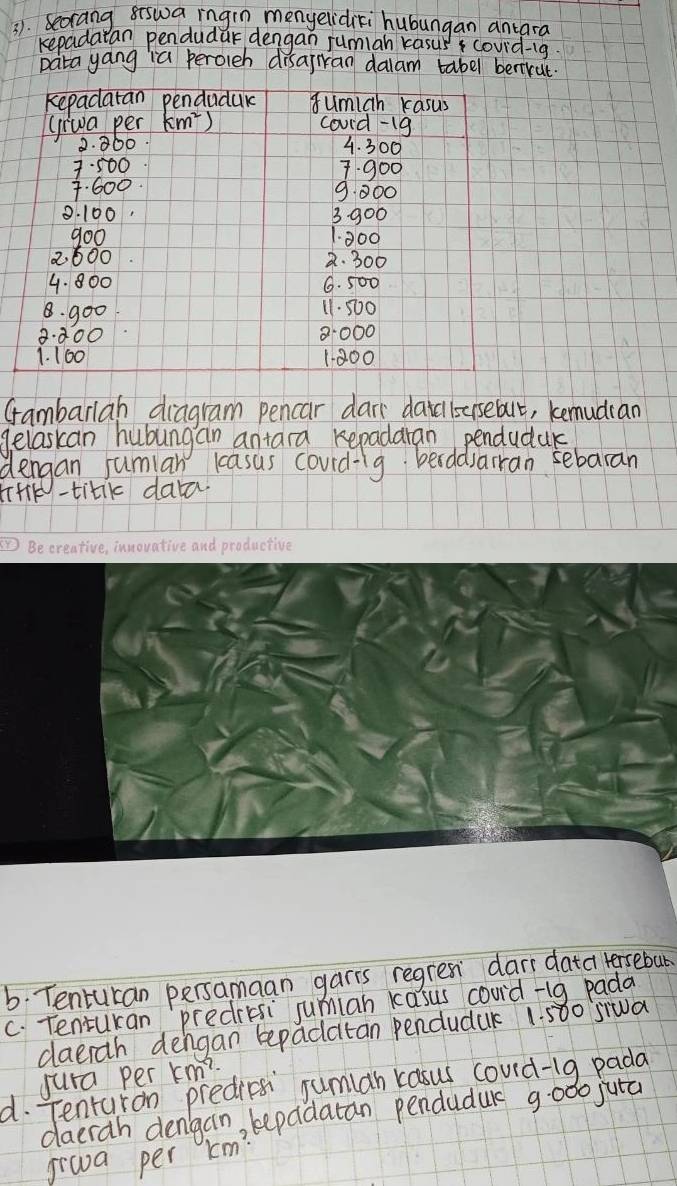 3). Seorang siswa ingin menyelidiki hubungan antara
kepadatan penduduk dengan jumlah kasus covid-19.
Data yang ia peroleh disajikan dalam tabel berikut.
Kepadatan penduduk Jumlah kasus
(jiwa per km²) covid-19
2.200 4.300
7.500 7.900
7.600 9.200
2.100 3.900
900 1.200
2.600 2.300
4.800 6.500
8.900 11.500
2.200 2.000
1.100 1.200
Gambarlah diagram pencar dari data tersebut, kemudian
jelaskan hubungan antara kepadatan penduduk
dengan jumlah kasus covid-19. berdasarkan sebaran
titik-titik data.
Be creative, innovative and productive
b. Tentukan persamaan garis regresi dari data tersebut
c. Tentukan prediksi jumlah kasus covid-19 pada
daerah dengan kepadatan penduduk 1.500 jiwa
juta per km².
d. Tentukan prediksi jumlah kasus covid-19 pada
daerah dengan kepadatan penduduk 9.000 juta
jiwa per km²